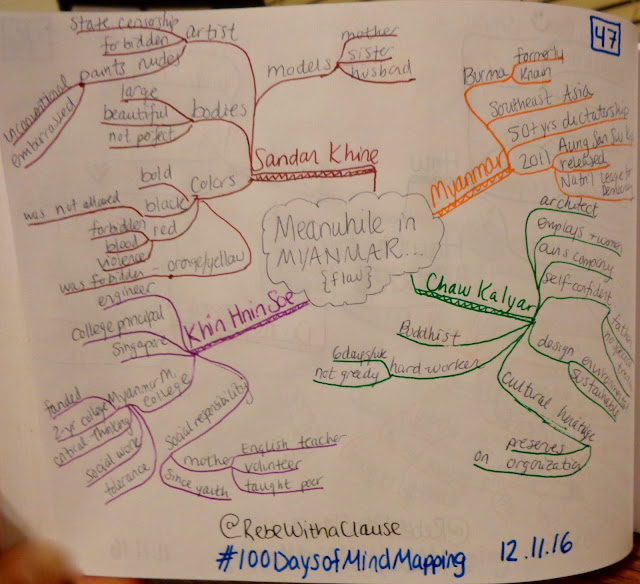 47
Meanwhile in
MYANMAR...
{flaw}
Sandar Khine
artist
state censorship
forbidden
paints nudes
unconventional
embarrassed
models
mother
sister
husband
bodies
large
beautiful
not perfect
Colors
bold
black
was not allowed
red
forbidden
blood
violence
orange/yellow
was forbidden
Myanmar
Burma
formerly
known
Southeast Asia
50+ yrs dictatorship
2011
Aung San Suu Kyi
released
Nat'l League for
Chaw Kalyar
architect
employs + women
own company
self-confident
father
design
environmental
sustainable
cultural heritage
preserves
on organization
hard worker
6 days/wk
not greedy
Buddhist
Khin Hnin Soe
engineer
college principal
Singapore
Myanmar M.
college
founded
2-yr college
critical thinking
social work
tolerance
social responsibility
mother
English teacher
volunteer
taught poor
since youth
@RebeWithaClause
#100DaysofMindMapping
12.11.16